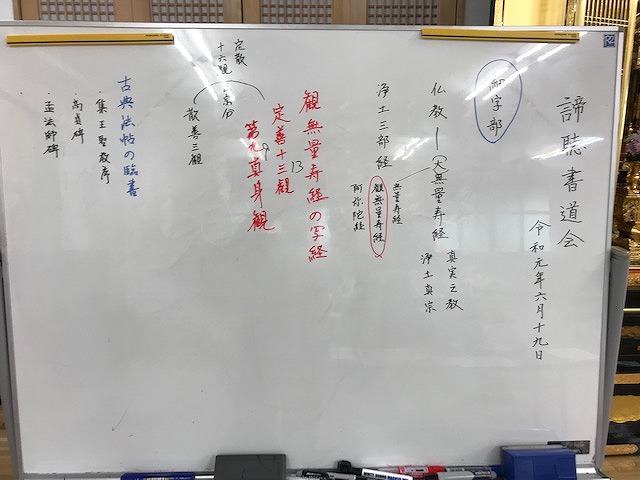 諦聴書道会
令和元年六月十九日
細字部
仏教ー(大)無量寿経
真実之教
浄土真宗
浄土三部経
無量寿経
観無量寿経
阿弥陀経
観無量寿経の写経
定善十三観
13
第九真身観
9
定散
十六観
散善三観
古典法帖の臨書
・集王聖教序
・高貞碑
・孟法師碑